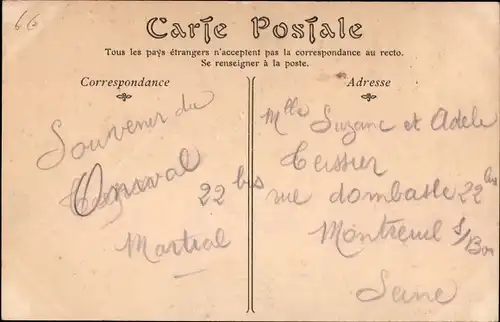 66
Carte Postale
Tous les pays étrangers n'acceptent pas la correspondance au recto.
Se renseigner à la poste.
Correspondance
Adresse
Souvenir du
22 bis
Martial
Mlle Suzane et Adele
Teissier
22 bis
rue dombasle
Montreuil s/Bois
Seine